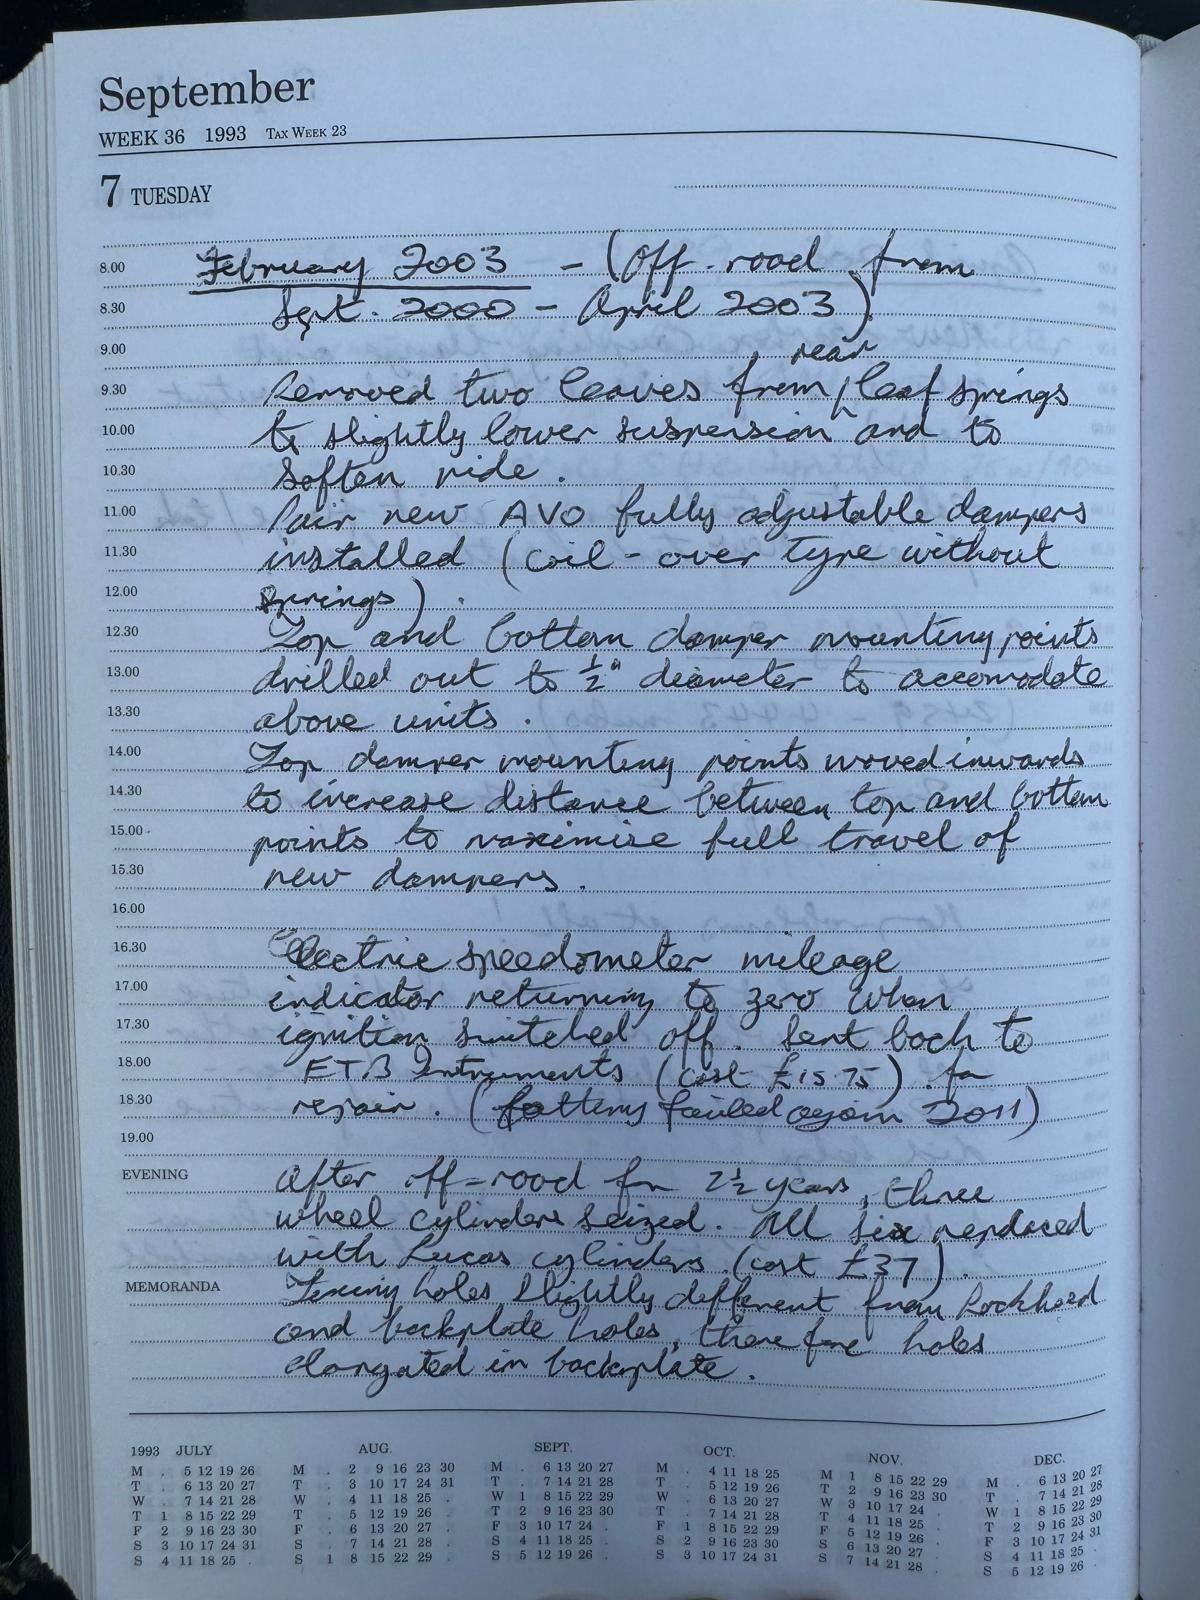 September
WEEK 36 1993 TAX WEEK 23
7 TUESDAY
8.00 February 2003 - (Off-road from
8.30 Sept. 2000 - April 2003).
9.00 rear
9.30 Removed two leaves from leaf springs
10.00 to slightly lower suspension and to
10.30 soften ride.
11.00 Pair new AVO fully adjustable dampers
11.30 installed (coil-over type without
12.00 springs).
12.30 Top and bottom damper mounting points
13.00 drilled out to 1/2" diameter to accomodate
13.30 above units.
14.00 Top damper mounting points moved inwards
14.30 to increase distance between top and bottom
15.00 points to maximise full travel of
15.30 new dampers.
16.00
16.30 Electric speedometer mileage
17.00 indicator returning to zero when
17.30 ignition switched off. Sent back to
18.00 ETB Instruments (cost £15 75) for
18.30 repair. (battery failed again 2011)
19.00
EVENING After off-road for 2 1/2 years, three
wheel cylinders seized. All six replaced
with Lucas cylinders. (cost £37).
MEMORANDA Fixing holes slightly different from Lockheed
and backplate holes, therefore holes
elongated in backplate.
1993 JULY AUG. SEPT. OCT. NOV. DEC.
M . 5 12 19 26 M . 2 9 16 23 30 M . 6 13 20 27 M . 4 11 18 25 M 1 8 15 22 29 M . 6 13 20 27
T . 6 13 20 27 T . 3 10 17 24 31 T . 7 14 21 28 T . 5 12 19 26 T 2 9 16 23 30 T . 7 14 21 28
W . 7 14 21 28 W . 4 11 18 25 . W 1 8 15 22 29 W . 6 13 20 27 W 3 10 17 24 . W 1 8 15 22 29
T 1 8 15 22 29 T . 5 12 19 26 . T 2 9 16 23 30 T . 7 14 21 28 T 4 11 18 25 . T 2 9 16 23 30
F 2 9 16 23 30 F . 6 13 20 27 . F 3 10 17 24 . F 1 8 15 22 29 F 5 12 19 26 . F 3 10 17 24 31
S 3 10 17 24 31 S . 7 14 21 28 . S 4 11 18 25 . S 2 9 16 23 30 S 6 13 20 27 . S 4 11 18 25 .
S 4 11 18 25 . S 1 8 15 22 29 . S 5 12 19 26 . S 3 10 17 24 31 S 7 14 21 28 . S 5 12 19 26 .